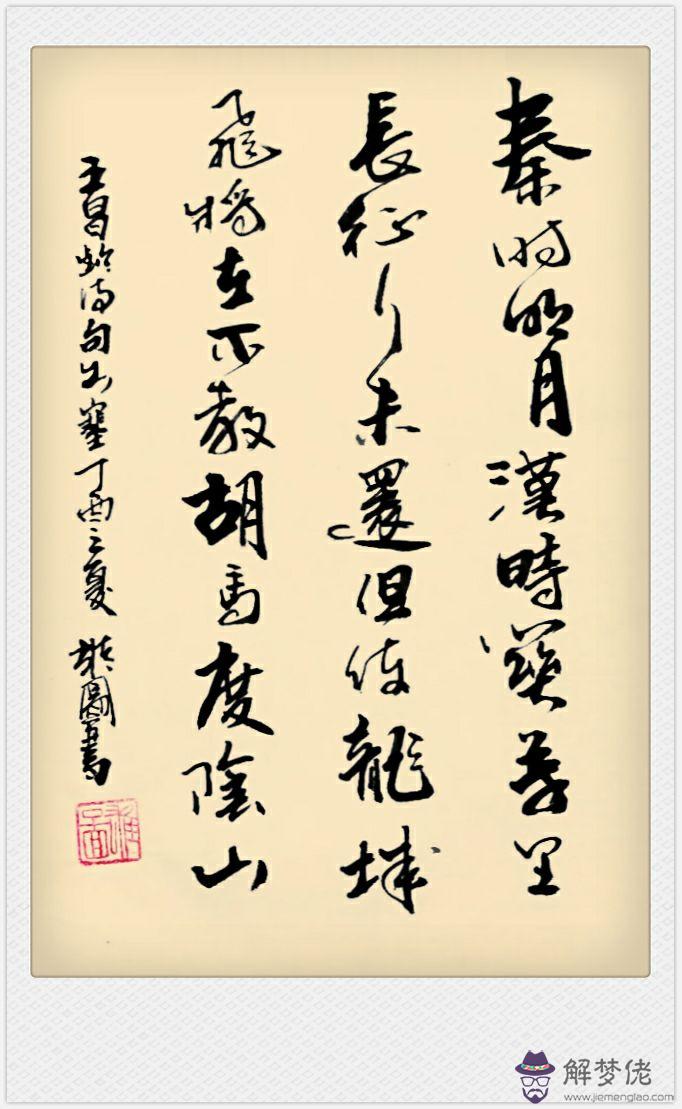 秦時明月漢時關萬里
長征人未還但使龍城
飛將在不教胡馬度陰山
王昌齡詩句出塞丁酉之夏 圖書
解梦佬
www.jiemenglao.com